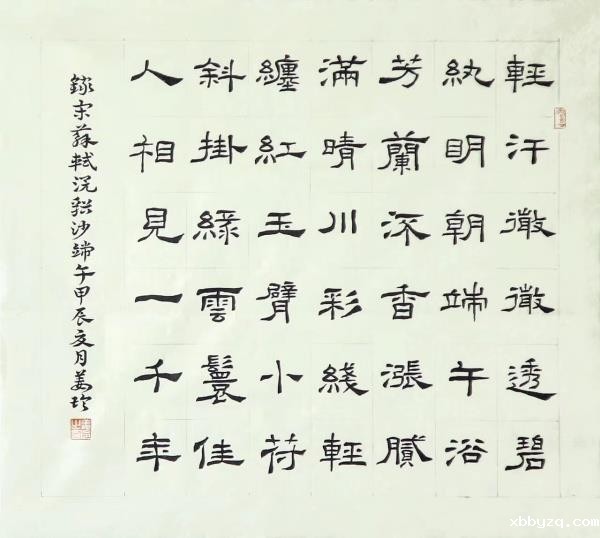 輕汗微微透碧
紈眀朝端午浴
芳蘭流香漲膩
滿晴川彩綫輕
纏紅玉臂小苻
斜掛緑雲鬟佳
人相見一千年
錄宋蘇軾浣谿沙端午甲辰亥月姜
xbbyzq.com